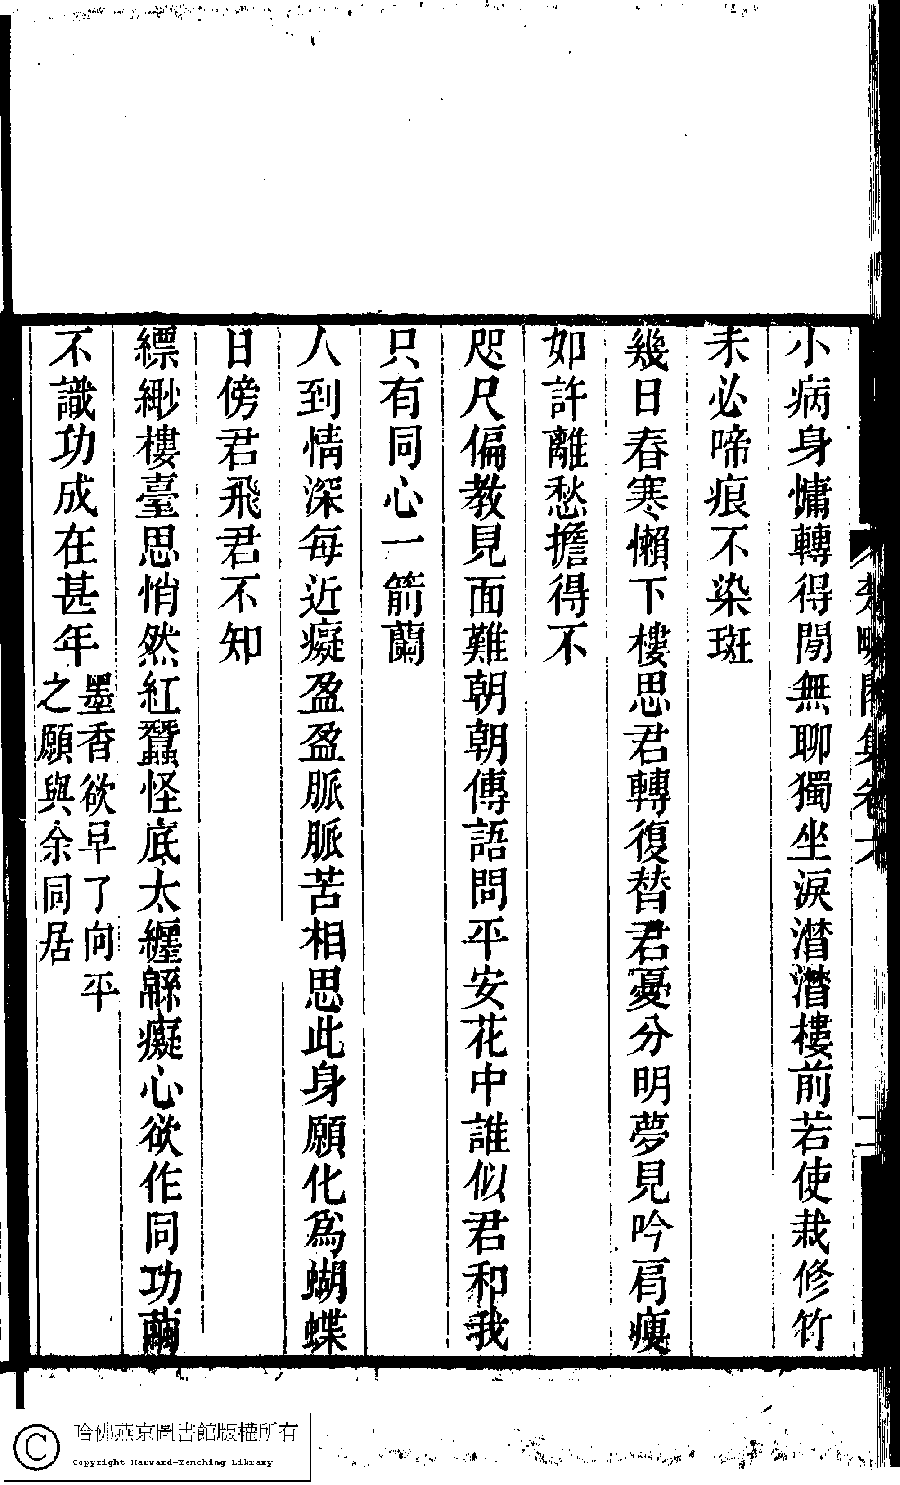 小病身慵轉得閒無聊獨坐淚潸潸樓前若使栽修竹
未必啼痕不染斑
幾日春寒懶下樓思君轉復替君憂分明夢見吟肩瘦
如許離愁擔得不
咫尺偏教見面難朝朝傳語問平安花中誰似君和我
只有同心一箭蘭
人到情深每近癡盈盈脈脈苦相思此身願化爲蝴蝶
日傍君飛君不知
縹緲樓臺思悄然紅蠶怪底太纏緜癡心欲作同功繭
不識功成在甚年
墨香欲早了向平
之願與余同居
哈佛燕京圖書館版權所有
Copyright Harvard-Yenching Library